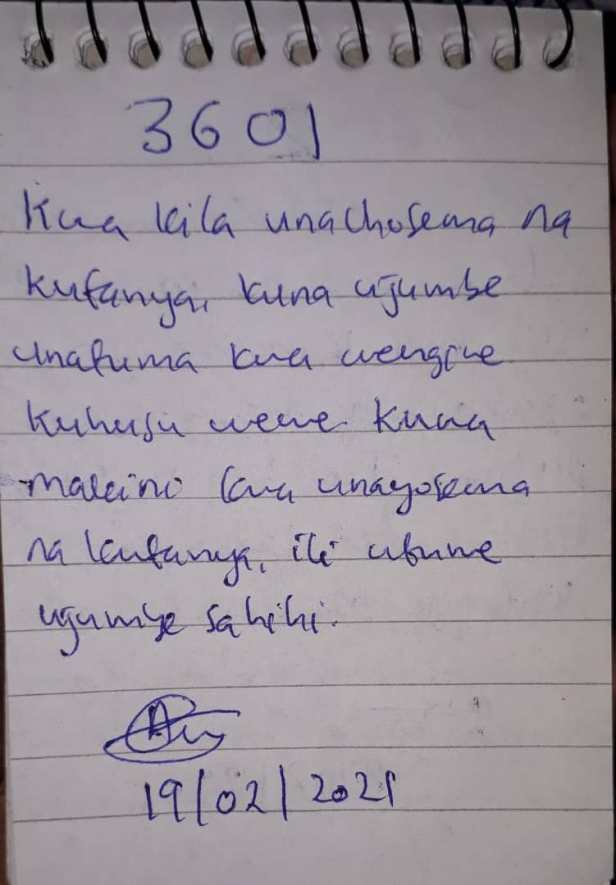 3601
Kwa kila unachosema na
kufanya, kuna ujumbe
unatuma kwa wengine
kuhusu wewe. Kuwa
makini kwa unayosema
na kufanya, ili utume
ujumbe sahihi.
19/02/2021